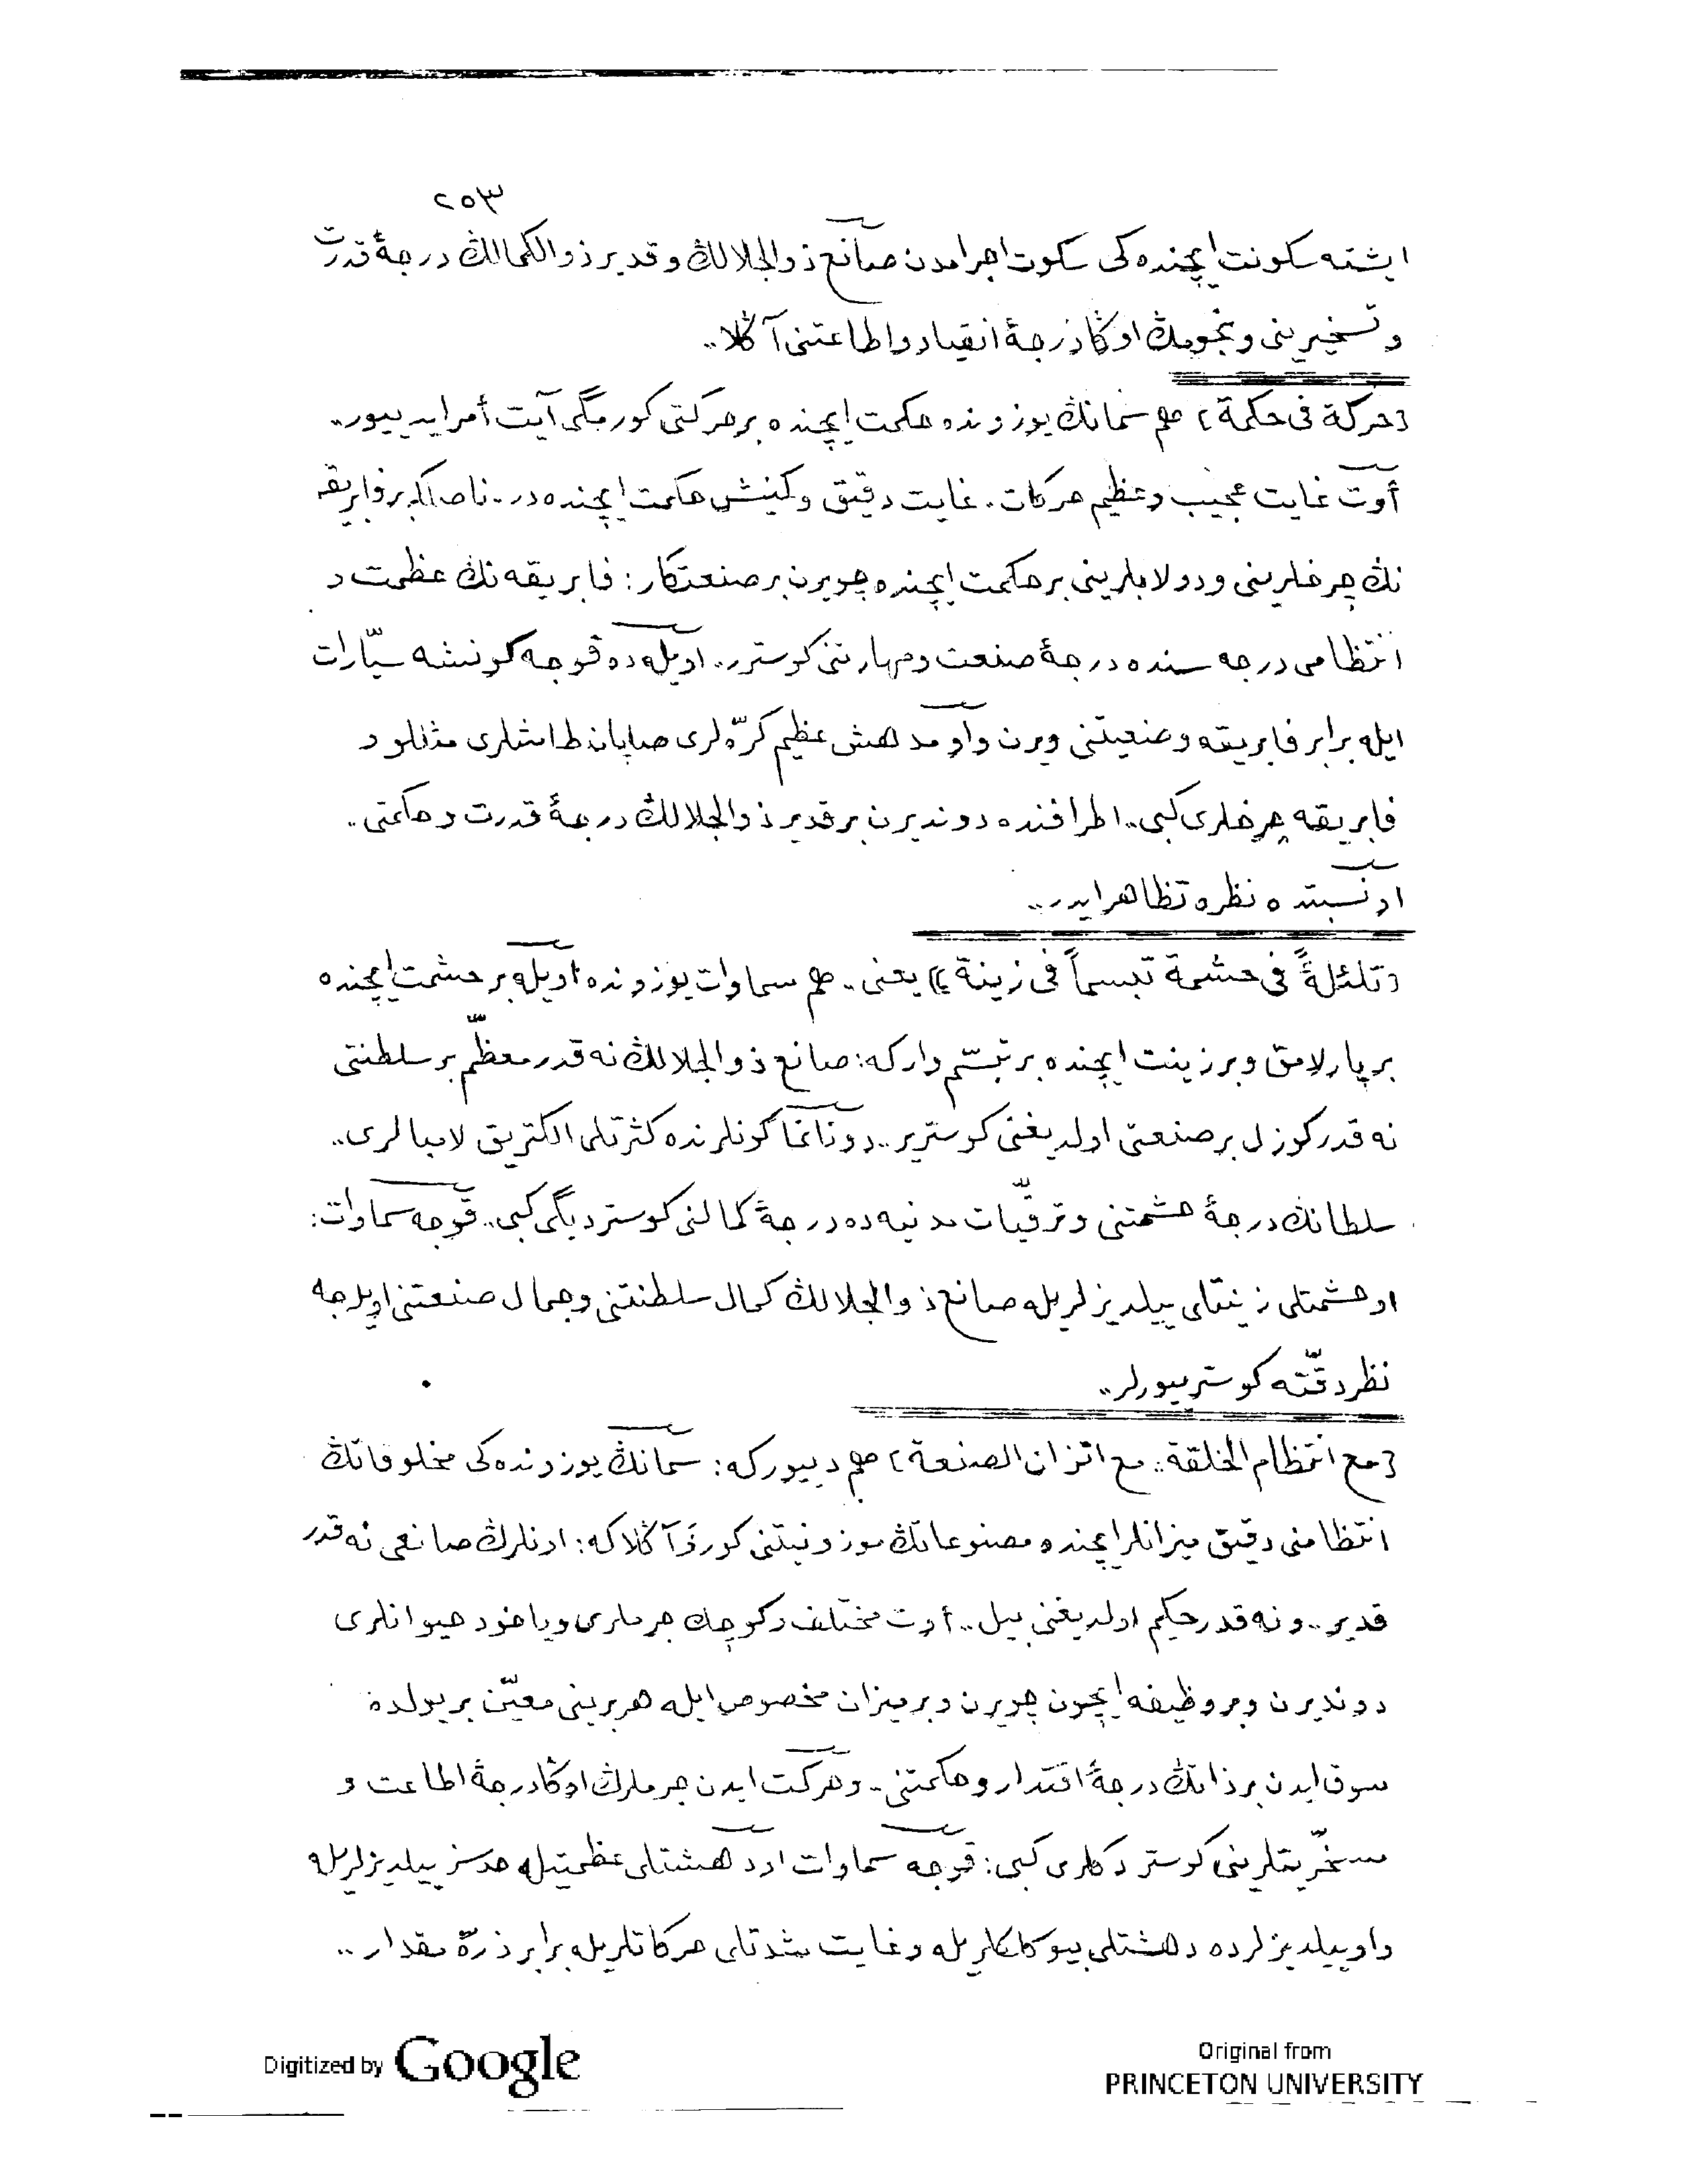 ٢٥٣
ایشته سكونت ایچنده‌كی سكوت اجرامدن صانع ذوالجلالك وقدیر ذوالكمالك درجۀ قدرت
وتسخیرینی ونجومڭ اوڭا درجۀ انقیاد واطاعتنی آڭلا..
[حركة فی حكمة] هم سمانڭ یوزونده حكمت ایچنده بر حركتی كورمگی آیت أمر ایدییور..
أوت غایت عجیب وعظیم حركات. غایت دقیق وكنیش حكمت ایچنده‌در. ناصلكه بر فابریقه
نڭ چرخلرینی ودولابلرینی بر حكمت ایچنده چویرن بر صنعتكار: فابریقه نڭ عظمت و
انتظامی درجه سنده درجۀ صنعت ومهارتنی كوسترر.. اویله ده قوجه كونشه سیّارات
ایله برابر فابریقه وضعیتنی ویرن واو مدهش عظیم كرّه‌لری صاپان طاشلری مثللو و
فابریقه چرخلری كبی.. اطرافنده دوندیرن بر قدیر ذوالجلالڭ درجۀ قدرت وحكمتی..
او نسبتده نظره تظاهر ایدر..
[تلئلۀً فی حشمة تبسماً فی زینة] یعنی.. هم سماوات یوزونده اویله بر حشمت ایچنده
بر پارلامق وبر زینت ایچنده بر تبسّم واركه: صانع ذوالجلالڭ نه قدر معظّم بر سلطنتی
نه قدر كوزل بر صنعتی اولدیغنی كوستریر.. دونانما كونلرنده كثرتلی الكتریق لامبالری..
سلطانڭ درجۀ حشمتنی وترقّیات مدنیه ده درجۀ كمالنی كوستردیگی كبی.. قوجه سماوات:
او حشمتلی زینتلی ییلدیزلریله صانع ذوالجلالڭ كمال سلطنتنی وجمال صنعتنی اویلجه
نظر دقّته كوسترییورلر..
[مع انتظام الخلقة.. مع اتزان الصنعة] هم دییوركه: سمانڭ یوزونده‌كی مخلوقاتڭ
انتظامنی دقیق میزانلر ایچنده مصنوعاتڭ موزونیتنی كور وَآڭلاكه: اونلرڭ صانعی نه قدر
قدیر.. ونه قدر حكیم اولدیغنی بیل.. أوت مختلف وكوچك جرملری ویاخود حیوانلری
دوندیرن وبر وظیفه ایچون چویرن وبر میزان مخصوص ایله هربرینی معیّن بر یولده
سوق ایدن بر ذاتڭ درجۀ اقتدار وحكمتنی.. وحركت ایدن جرملرڭ اوڭا درجۀ اطاعت و
مسخّریتلرینی كوستردكلری كبی: قوجه سماوات او دهشتلی عظمتیله حدسز ییلدیزلریله
واو ییلدیزلرده دهشتلی بیوكلكلریله وغایت شدتلی حركاتلریله برابر ذرّه مقدار ..
Digitized by Google
Original from
PRINCETON UNIVERSITY